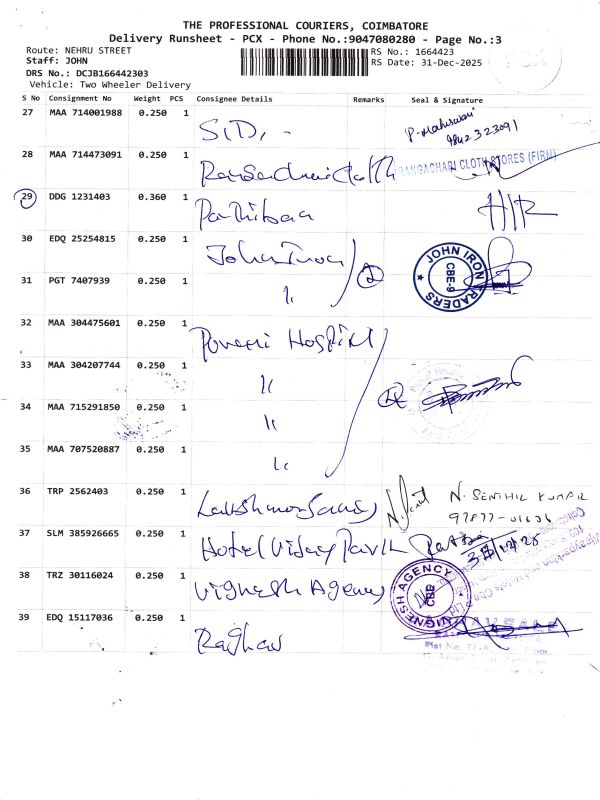 THE PROFESSIONAL COURIERS, COIMBATORE
Delivery Runsheet - PCX - Phone No.:9047080280 - Page No.:3
Route: NEHRU STREET RS No.: 1664423
Staff: JOHN RS Date: 31-Dec-2025
DRS No.: DCJB166442303
Vehicle: Two Wheeler Delivery
S No Consignment No Weight PCS Consignee Details Remarks Seal & Signature
27 MAA 714001988 0.250 1 S.D, -
9842323091
28 MAA 714473091 0.250 1 RANGACHARI CLOTH STORES (FIRM)
29 DDG 1231403 0.360 1
30 EDQ 25254815 0.250 1 John Iron 2 JOHN IRON TRADERS CBE-9
31 PGT 7407939 0.250 1 "
32 MAA 304475601 0.250 1 Hospital
33 MAA 304207744 0.250 1 " 4
34 MAA 715291850 0.250 1 "
35 MAA 707520887 0.250 1 "
36 TRP 2562403 0.250 1 N. SENTHIL KUMAR
97877-01636
37 SLM 385926665 0.250 1 Hotel Vijay Park
38 TRZ 30116024 0.250 1 Vignesh Agency VIGNESH AGENCY CBE
39 EDQ 15117036 0.250 1 Raghav